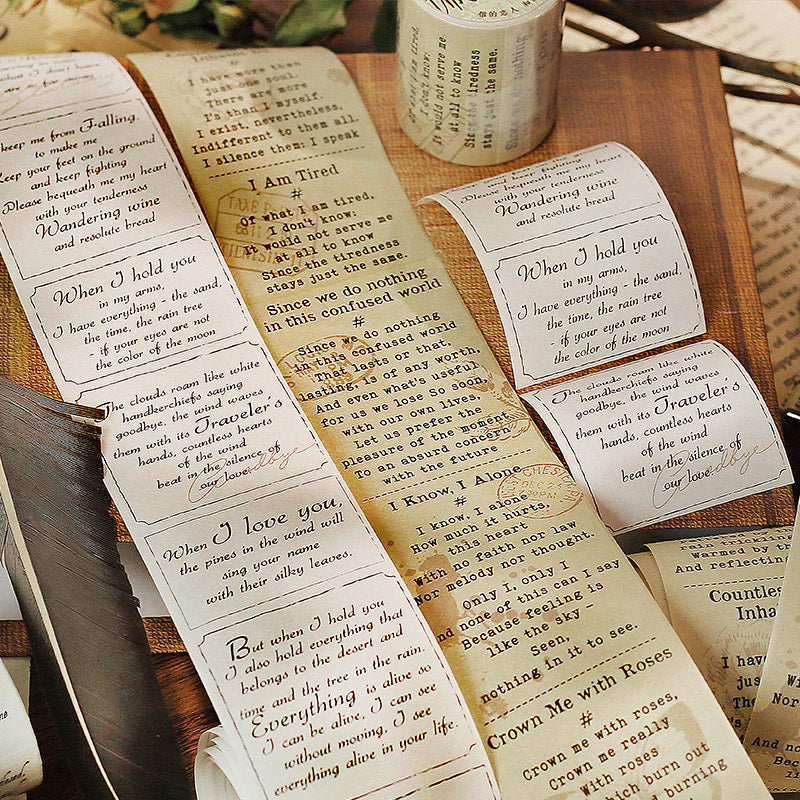 keep me from Falling.
to make me
Keep your feet on the ground
and keep fighting
Please bequeath me my heart
with your tenderness
Wandering wine
and resolute bread
When I hold you
in my arms,
I have everything - the sand,
the time, the rain tree
- if your eyes are not
the color of the moon
The clouds roam like white
handkerchiefs saying
goodbye, the wind waves
them with its Traveler's
hands, countless hearts
of the wind
beat in the silence of
our love.
Goodbye
When I love you,
the pines in the wind will
sing your name
with their silky leaves.
But when I hold you
I also hold everything that
belongs to the desert and
time and the tree in the rain.
Everything is alive so
I can be alive, I can see
without moving, I see
everything alive in your life.
I have more than
just one soul.
There are more
I's than I myself.
I exist, nevertheless,
Indifferent to them all.
I silence them: I speak
I Am Tired
#
Of what I am tired,
I don't know:
It would not serve me
at all to know
Since the tiredness
stays just the same.
Since we do nothing
in this confused world
#
Since we do nothing
in this confused world
That lasts or that,
lasting, is of any worth,
And even what's useful
for us we lose So soon,
with our own lives,
Let us prefer the
pleasure of the moment
To an absurd concern
with the future
I Know, I Alone
#
I know, I alone
How much it hurts,
this heart
With no faith nor law
Nor melody nor thought.
Only I, only I
And none of this can I say
Because feeling is
like the sky -
Seen,
nothing in it to see.
Crown Me with Roses
#
Crown me with roses,
Crown me really
With roses
which burn out
burning
I am tired,
I don't know:
It would not serve me
at all to know
Since the tiredness
stays just the same.
Since
nothing
Please bequeath me my heart
with your tenderness
Wandering wine
and resolute bread
When I hold you
in my arms,
I have everything - the sand,
the time, the rain tree
- if your eyes are not
the color of the moon
The clouds roam like white
handkerchiefs saying
goodbye, the wind waves
them with its Traveler's
hands, countless hearts
of the wind
beat in the silence of
our love.
Goodbye
warmed by the
And reflecting
Countless
Inha
I have
jus
The
Wi
Nor
And no
Beca